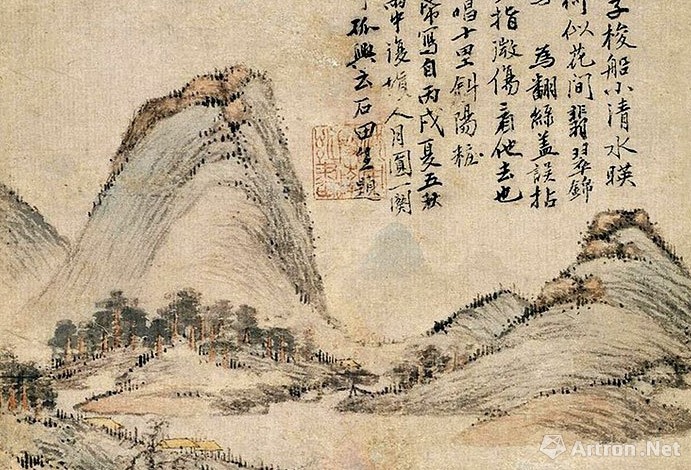 子梭船小清水暎
何似花間翡翠錦
為翻絲盖誤拈
指微傷看他去也
唱十里斜陽粧
常寫自丙戌夏五秋
雨中復填人月圓一闋
孤興云石田生題
Artron.Net